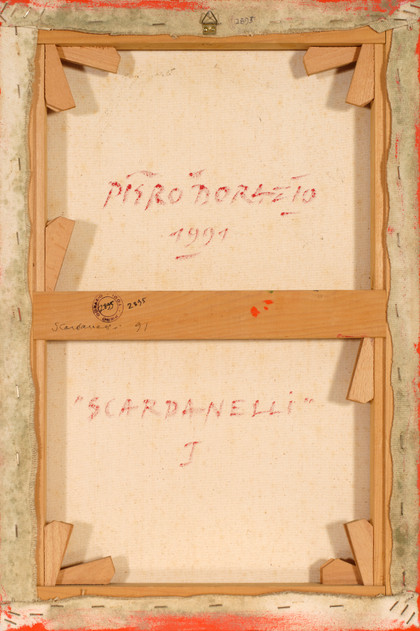 2895
PIERO DORAZIO
1991
2895 2895
Scardanelli 91
"SCARDANELLI"
I